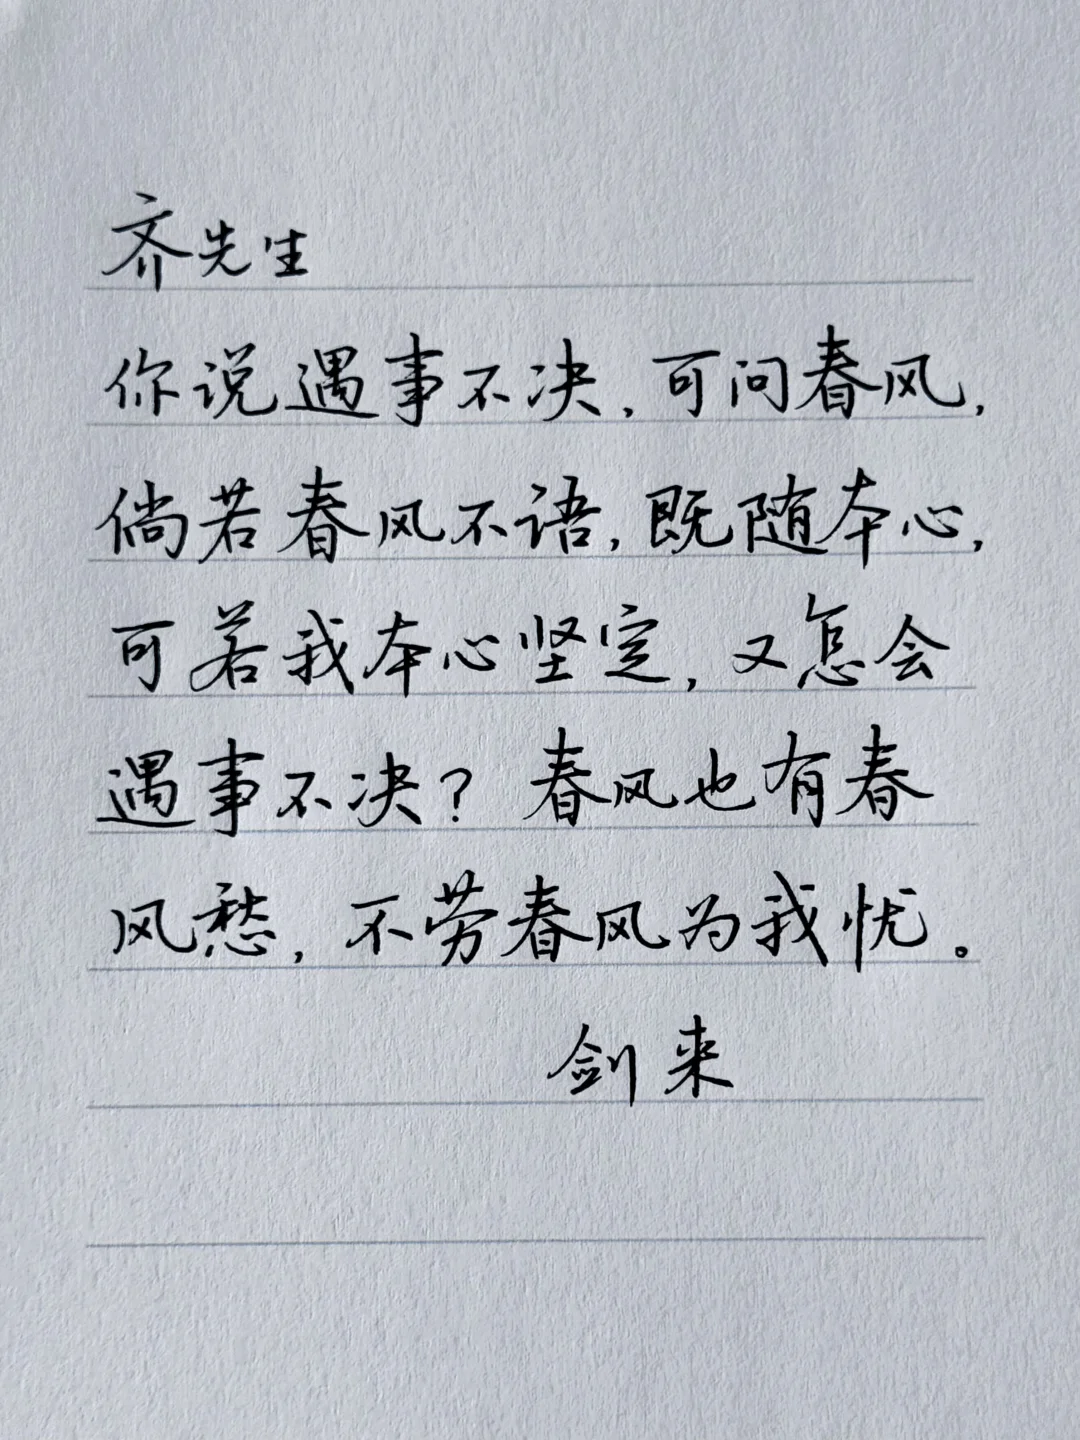 齐先生
你说遇事不决，可问春风，
倘若春风不语，既随本心，
可若我本心坚定，又怎会
遇事不决？春风也有春
风愁，不劳春风为我忧。
剑来